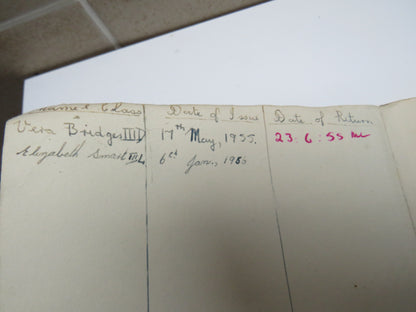 Name & Class Date of Issue Date of Return
Vera Bridges IIII 17th May, 1955. 23.6:55
Elizabeth Smart 6th Jan., 1956